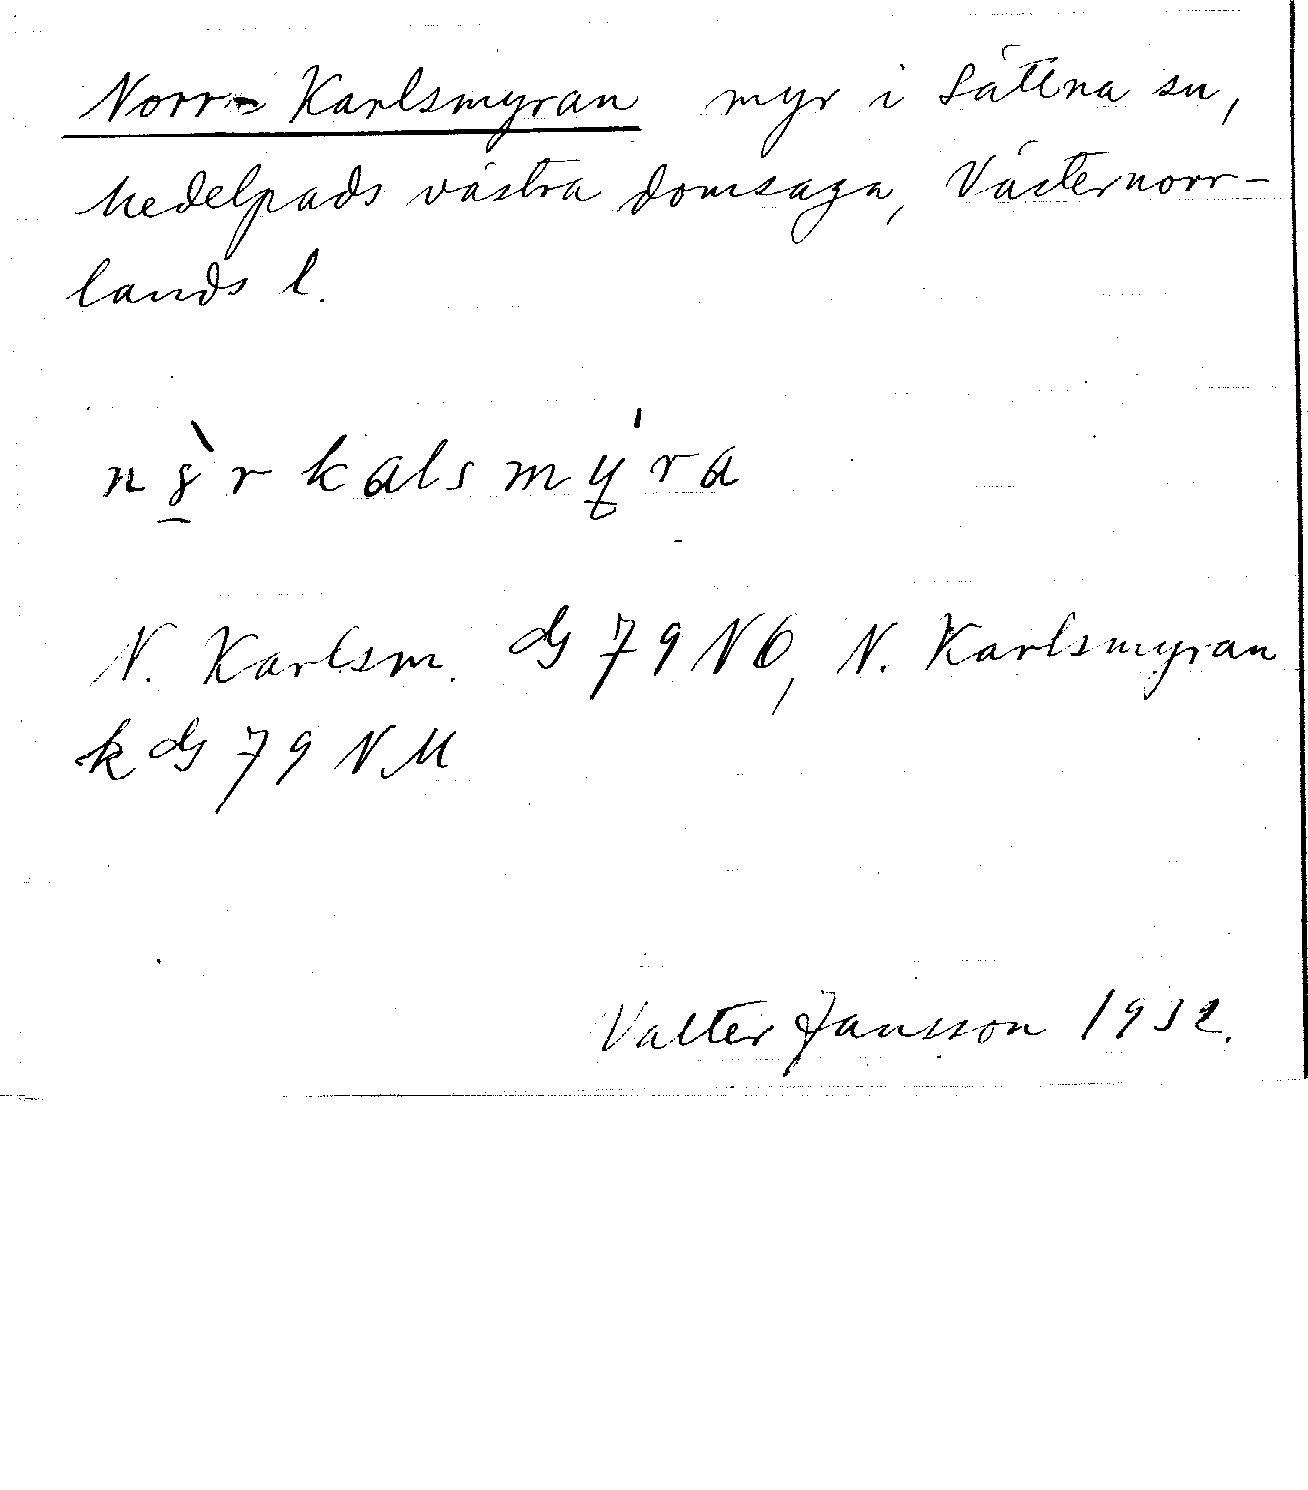 Norr-Karlsmyran myr i Sättna sn,
Medelpads västra domsaga, Västernorr-
lands l.
kalsmý̱ra
N. Karlsm. dg 79 NO, N. Karlsmyran
k dg 79 NM
Valter Jansson 1932.